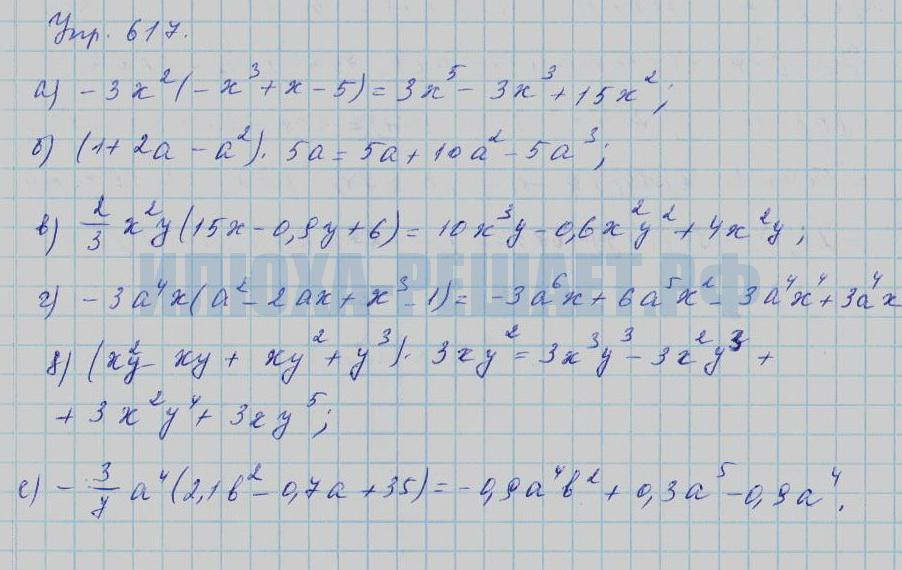 Упр. 617.
а) -3x²(-x³+x-5)=3x⁵-3x³+15x²;
б) (1+2a-a²)·5a=5a+10a²-5a³;
в) 2/3 x²y(15x-0,9y+6)=10x³y-0,6x²y²+4x²y;
ИЛЮХА-РЕШАЕТ.РФ
г) -3a⁴x(a²-2ax+x³-1)=-3a⁶x+6a⁵x²-3a⁴x⁴+3a⁴x
д) (x²y-xy+xy²+y³)·3xy²=3x³y³-3x²y³+
+3x²y⁴+3xy⁵;
е) -3/7 a⁴(2,1b²-0,7a+35)=-0,9a⁴b²+0,3a⁵-0,9a⁴.